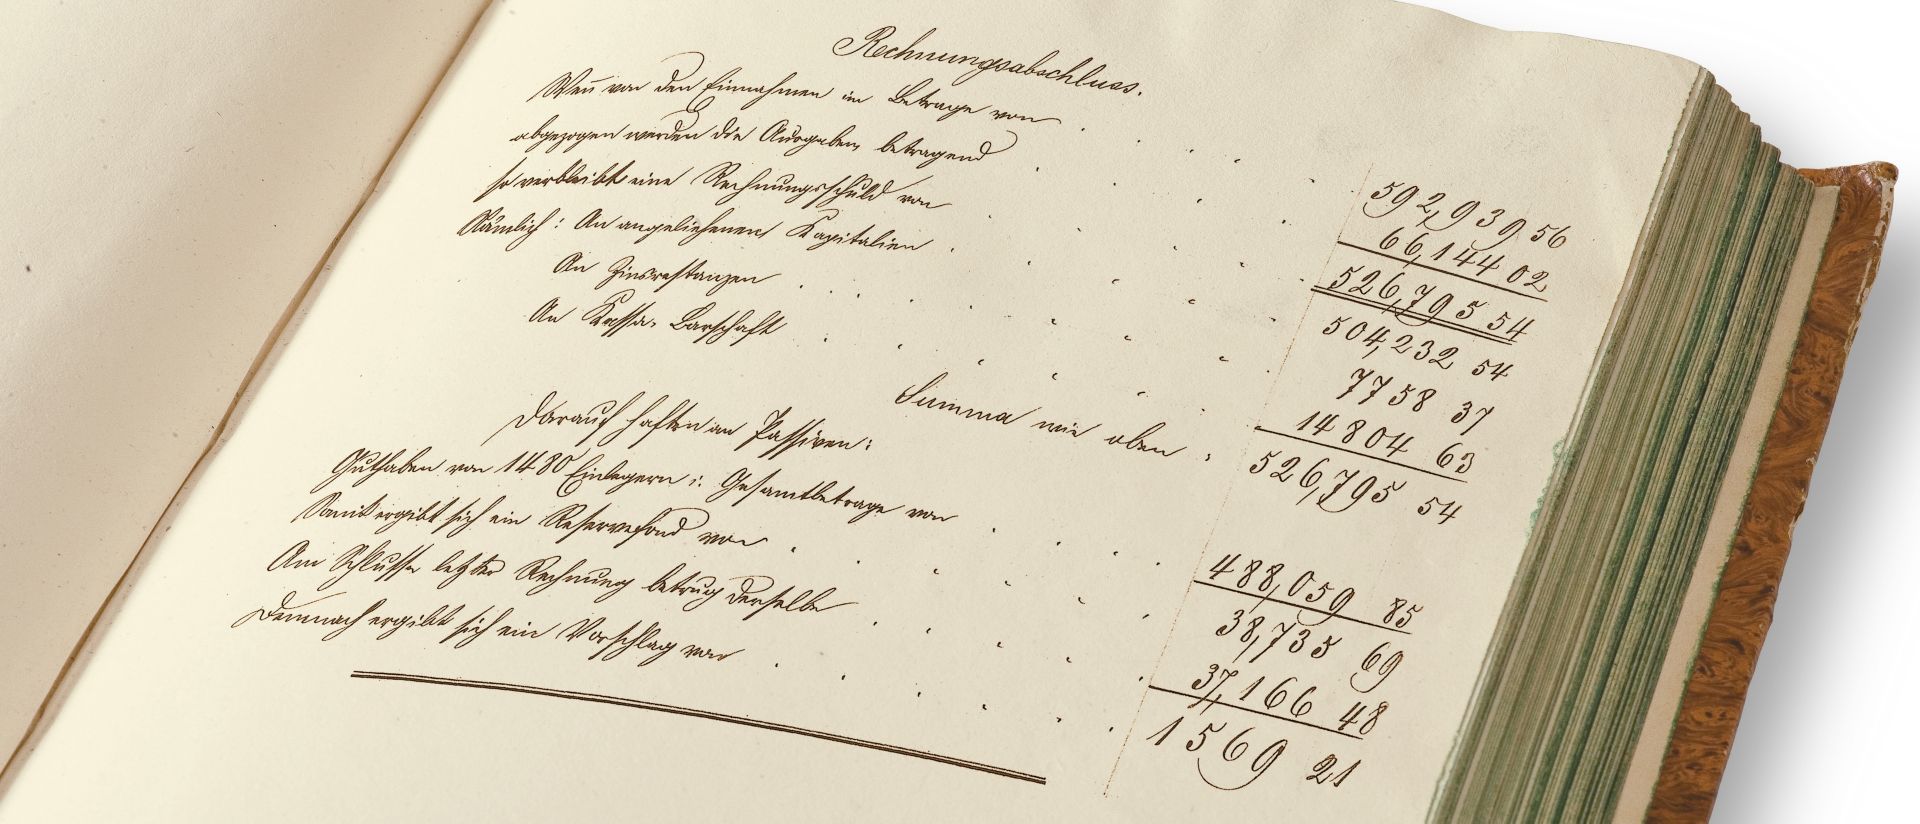 Rechnungsabschluss.
Wen̄ von den Einnahmen im Betrage von . . . . 592,939 56
abgezogen werden die Ausgaben, betragend . . . . 66,144 02
so verbleibt eine Rechnungsschuld von . . . . 526,795 54
Nämlich: An angeliehenen Kapitalien . . . . 504,232 54
An Zinsrestanzen . . . . 7758 37
An Kassa-Barschaft . . . . 14804 63
Summa wie oben . 526,795 54
Darauf haften an Passiven:
Guthaben von 1480 Einlegern i: Gesamtbetrage von . . . . 488,059 85
Somit ergibt sich ein Reservefond von . . . . 38,735 69
Am Schlusse letzter Rechnung betrug derselbe . . . . 37,166 48
Demnach ergibt sich ein Vorschlag von . . . . 1569 21